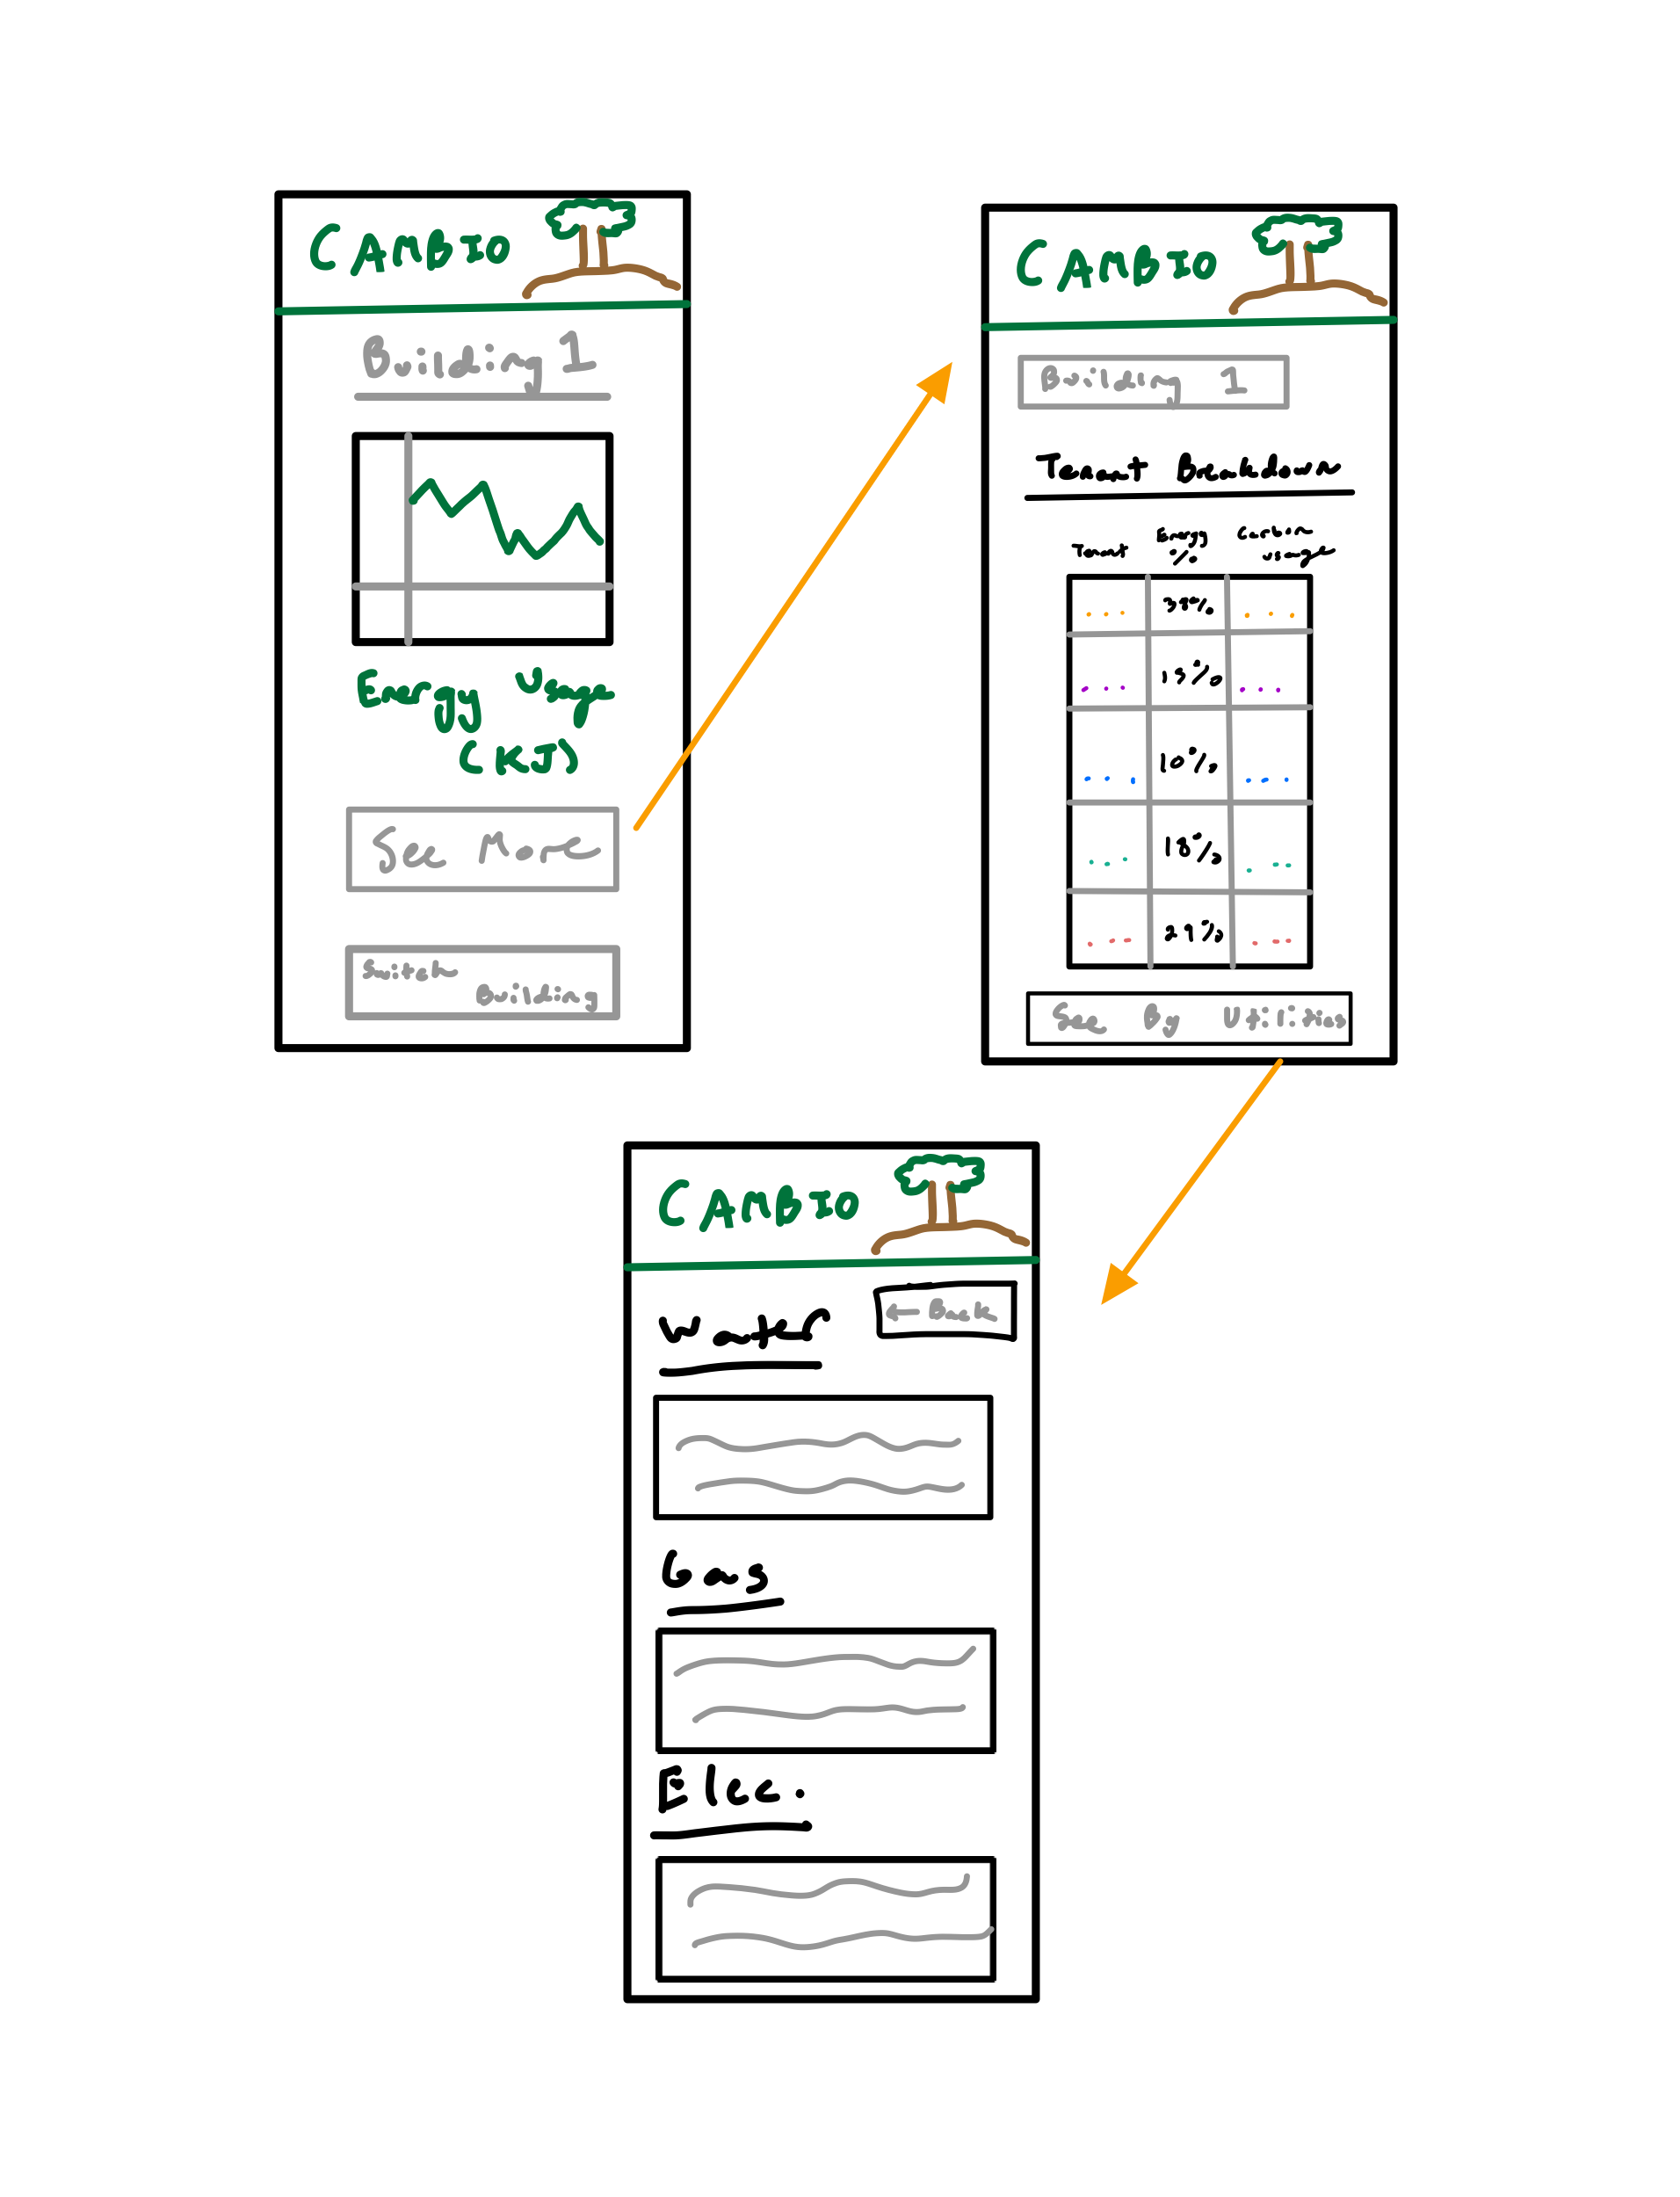 CAMBIO
Building 1
Energy Usage
(KJ)
See More
Switch
Building
CAMBIO
Building 1
Tenant Breakdown
Tenant Energy % Carbon usage
... ...
... 15% ...
... 10% ...
... 18% ...
... 29% ...
See By Utilities
CAMBIO
Water
← Back
Gas
Elec.